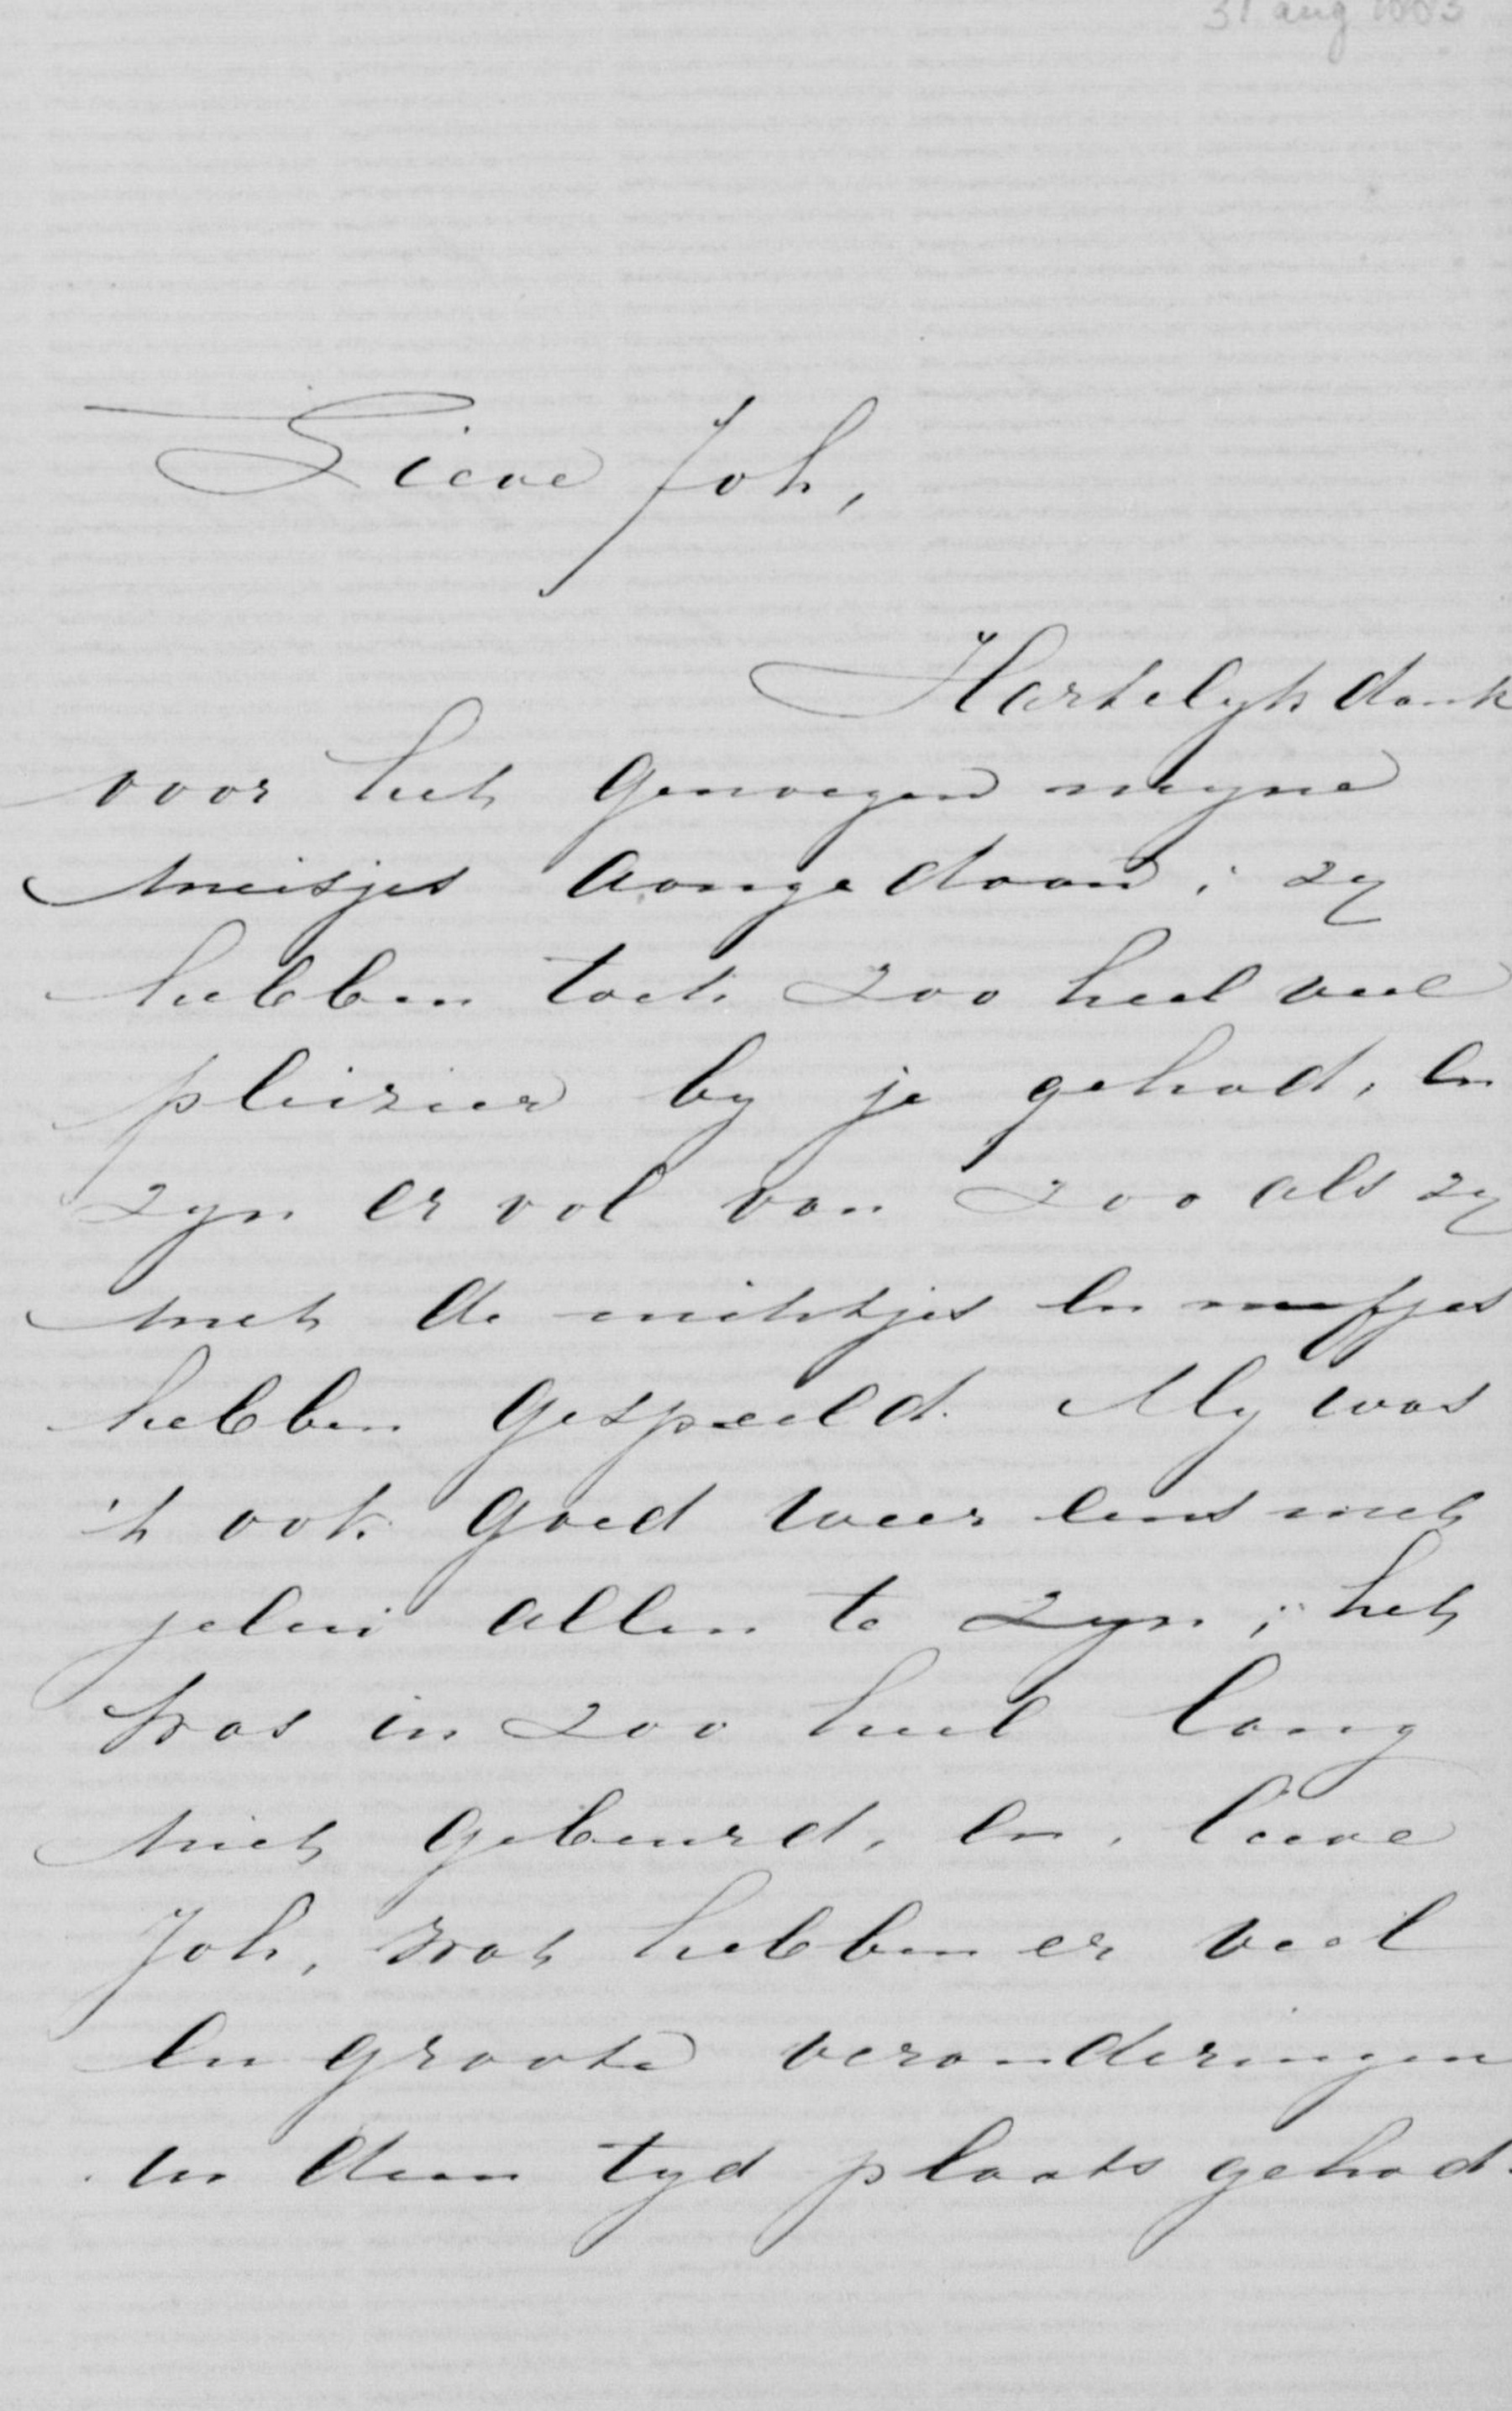 31 aug
Lieve Joh,
Hartelyk dank
voor het genoegen myne
meisjes aangedaan; zy
hebben toch zoo heel veel
pleizier by je gehad, en
zyn er vol van zoo als zy
met de nichtjes en neefjes
hebben gespeeld. My was
't ook goed weer eens met
jelui allen te zyn; het
was in zoo heel lang
niet gebeurd, en, lieve
Joh, wat hebben er veel
en groote veranderingen
in dien tyd plaats gehad.